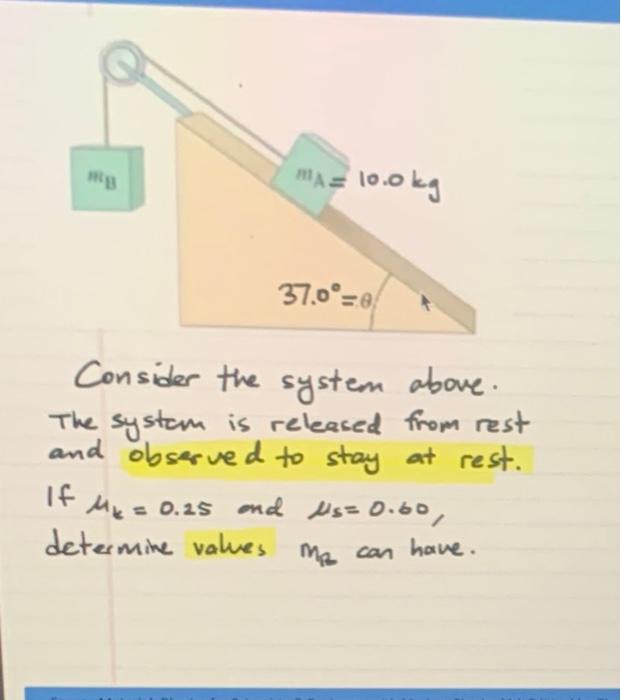 mB
mA = 10.0 kg
37.0° = θ
Consider the system above.
The system is released from rest
and observed to stay at rest.
If μk = 0.25 and μs = 0.60,
determine values mB can have.